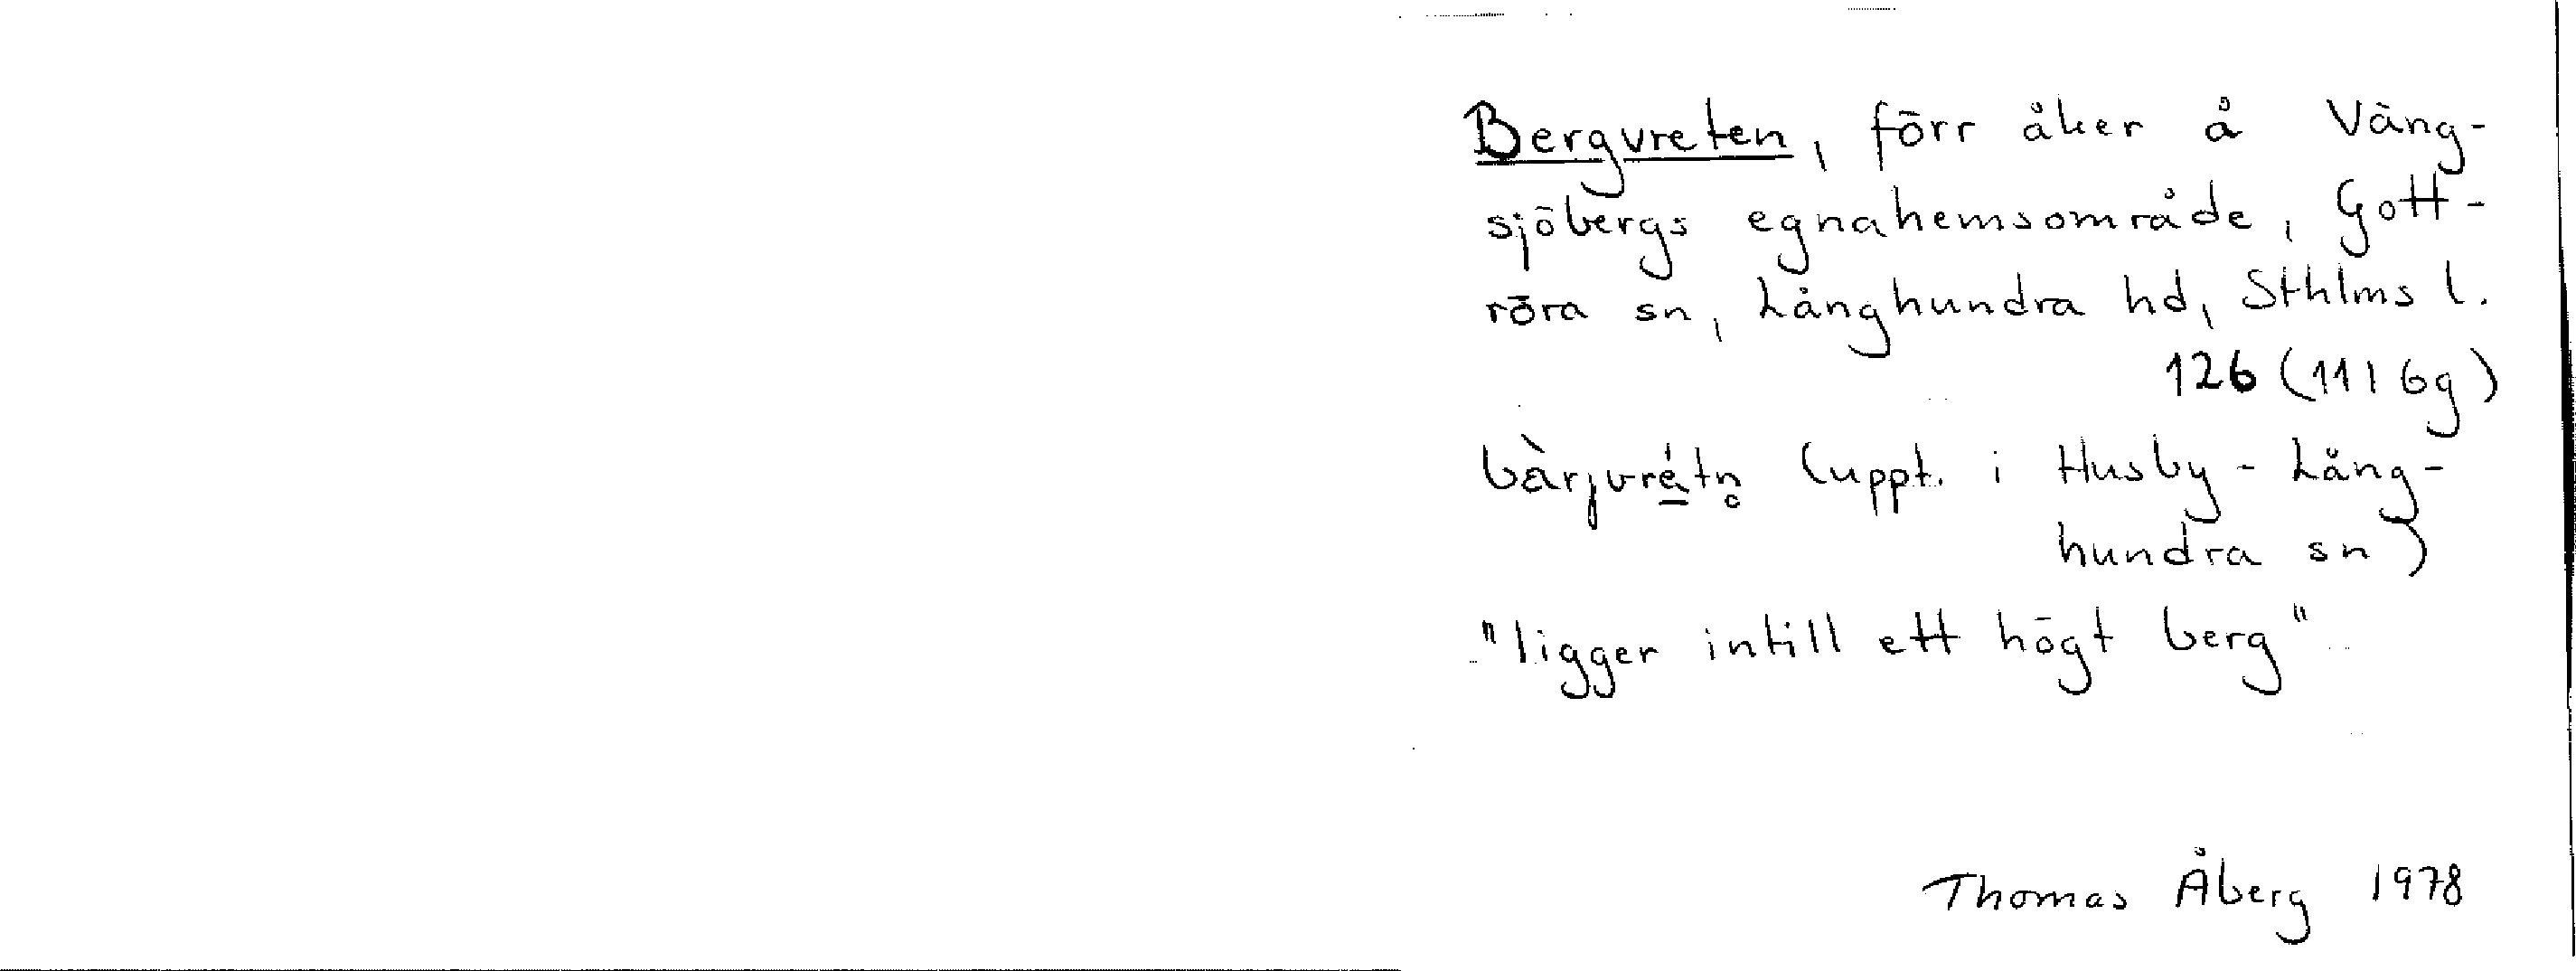 Bergvreten, förr åker å Väng-
sjöbergs egnahemsområde, Gott-
röra sn, Långhundra hd, Sthlms l.
126 (11I 6g)
bàrjvrétn̥ (uppt. i Husby-Lång-
hundra sn)
"ligger intill ett högt berg"
Thomas Åberg 1978